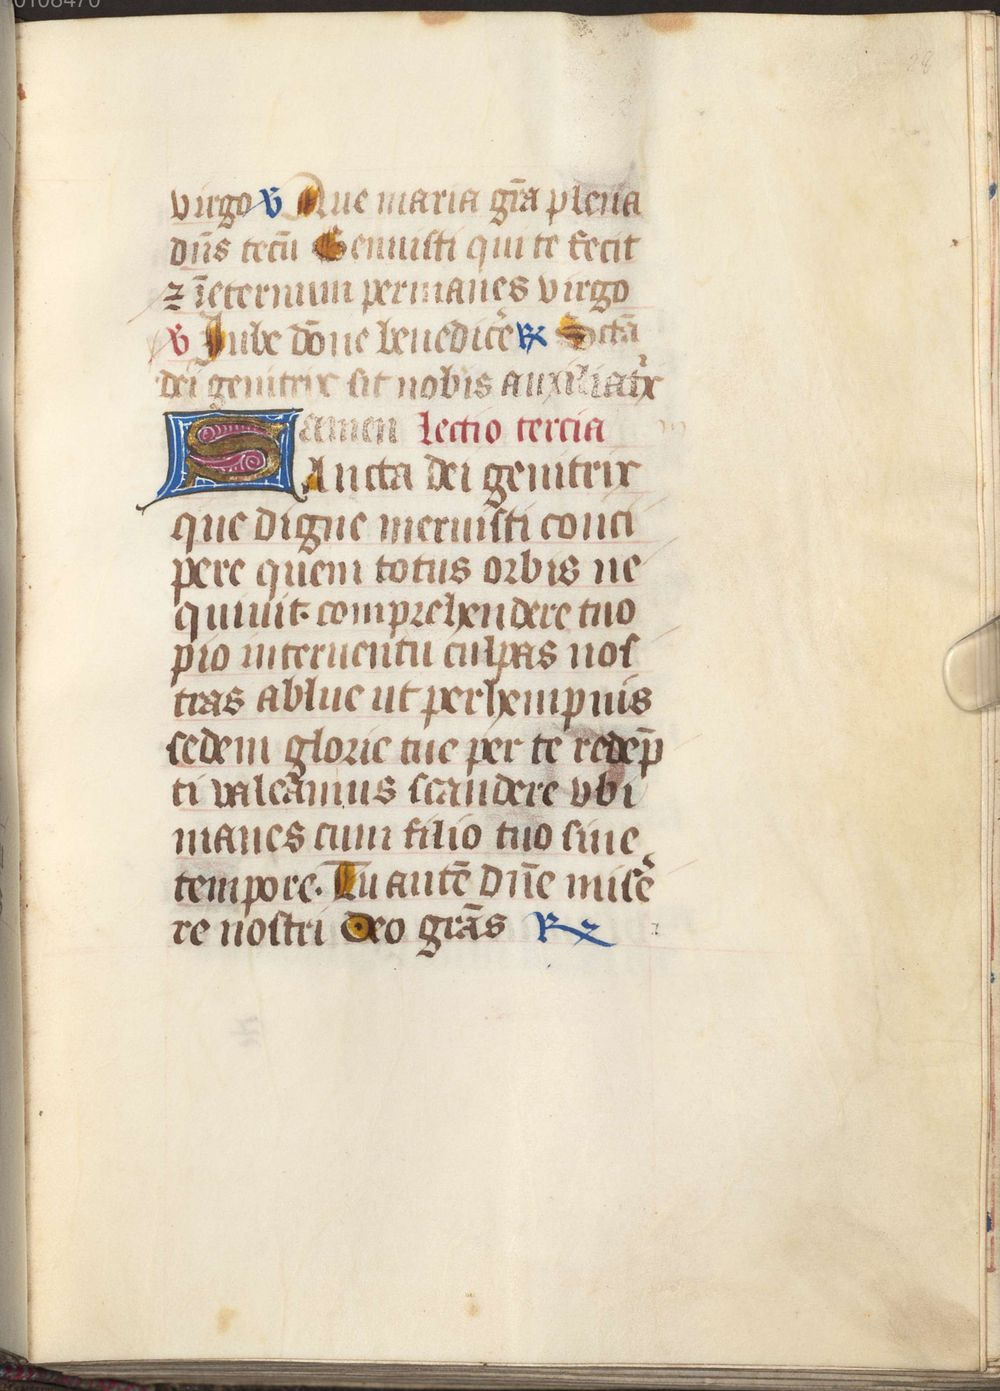 virgo ℣ Aue maria gr̄a plena
dn̄s tecū Genuisti qui te fecit
⁊ īeternum permanes virgo
℣ Iube dōne benedicẽ ℟ Sctā
dei genitrix sit nobis auxiliatͥx
amen lectio tercia
SAncta dei genitrix
que digne meruisti conci
pere quem totus orbis ne
quiuit· comprehendere tuo
pio interuentu culpas nos
tras ablue ut perhempnis
sedem glorie tue per te redep̄
ti valeamus scandere vbi
manes cum filio tuo sine
tempore· Tu autē dn̄e misẽ
re nostri Deo grās ℟
28